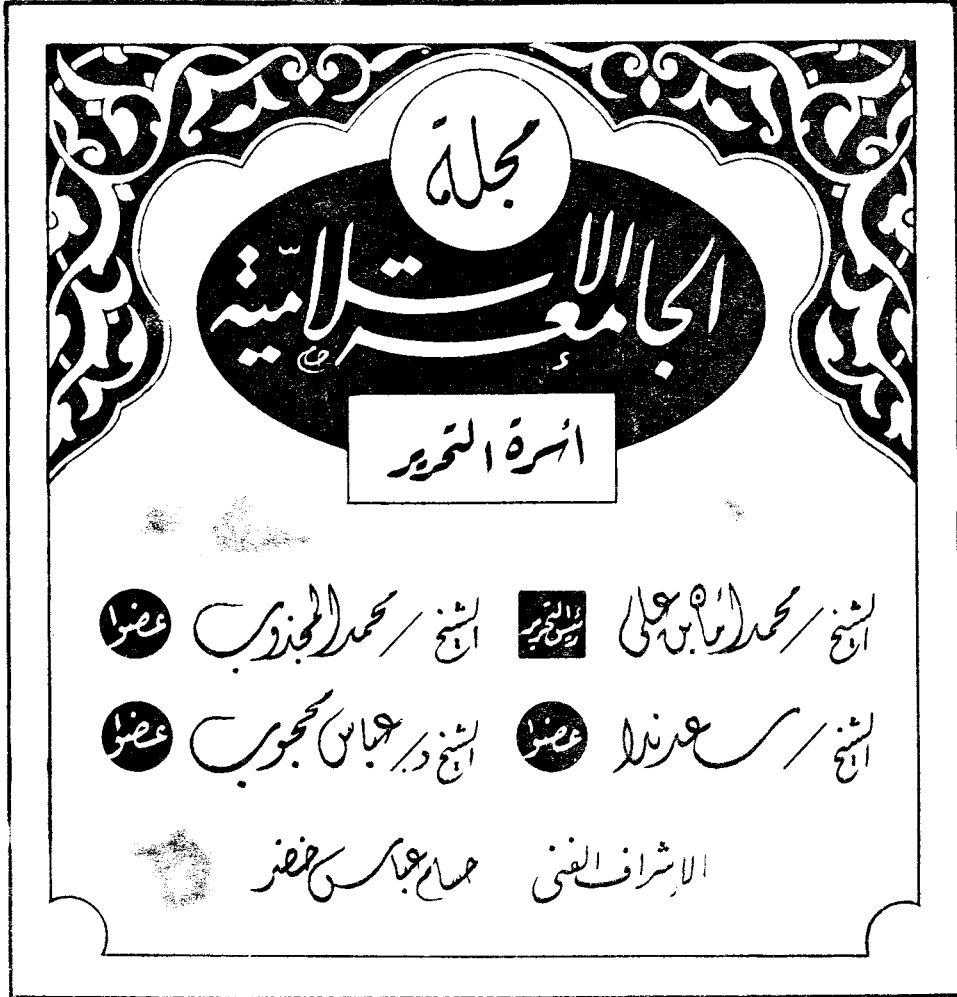 مجلة
الجامعة الإسلامية
أسرة التحرير
الشيخ / محمد أمان بن علي رئيس التحرير الشيخ / محمد المجذوب عضوا
الشيخ / سعد ندا عضوا الشيخ د / عباس محجوب عضوا
الاشراف الفنى حسام عباس خضر